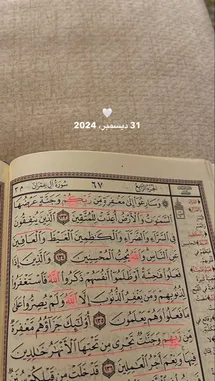 31 ديسمبر، 2024
الجزء الرابع ٦٧ سورة آل عمران
وَسَارِعُوٓا۟ إِلَىٰ مَغْفِرَةٍ مِّن رَّبِّكُمْ وَجَنَّةٍ عَرْضُهَا
ٱلسَّمَٰوَٰتُ وَٱلْأَرْضُ أُعِدَّتْ لِلْمُتَّقِينَ ١٣٣ ٱلَّذِينَ يُنفِقُونَ
فِى ٱلسَّرَّآءِ وَٱلضَّرَّآءِ وَٱلْكَٰظِمِينَ ٱلْغَيْظَ وَٱلْعَافِينَ
عَنِ ٱلنَّاسِ وَٱللَّهُ يُحِبُّ ٱلْمُحْسِنِينَ ١٣٤ وَٱلَّذِينَ إِذَا
فَعَلُوا۟ فَٰحِشَةً أَوْ ظَلَمُوٓا۟ أَنفُسَهُمْ ذَكَرُوا۟ ٱللَّهَ فَٱسْتَغْفَرُوا۟
لِذُنُوبِهِمْ وَمَن يَغْفِرُ ٱلذُّنُوبَ إِلَّا ٱللَّهُ وَلَمْ يُصِرُّوا۟ عَلَىٰ
مَا فَعَلُوا۟ وَهُمْ يَعْلَمُونَ ١٣٥ أُو۟لَٰٓئِكَ جَزَآؤُهُم مَّغْفِرَةٌ
مِّن رَّبِّهِمْ وَجَنَّٰتٌ تَجْرِى مِن تَحْتِهَا ٱلْأَنْهَٰرُ خَٰلِدِينَ
فِيهَا وَنِعْمَ أَجْرُ ٱلْعَٰمِلِينَ ١٣٦ قَدْ خَلَتْ مِن